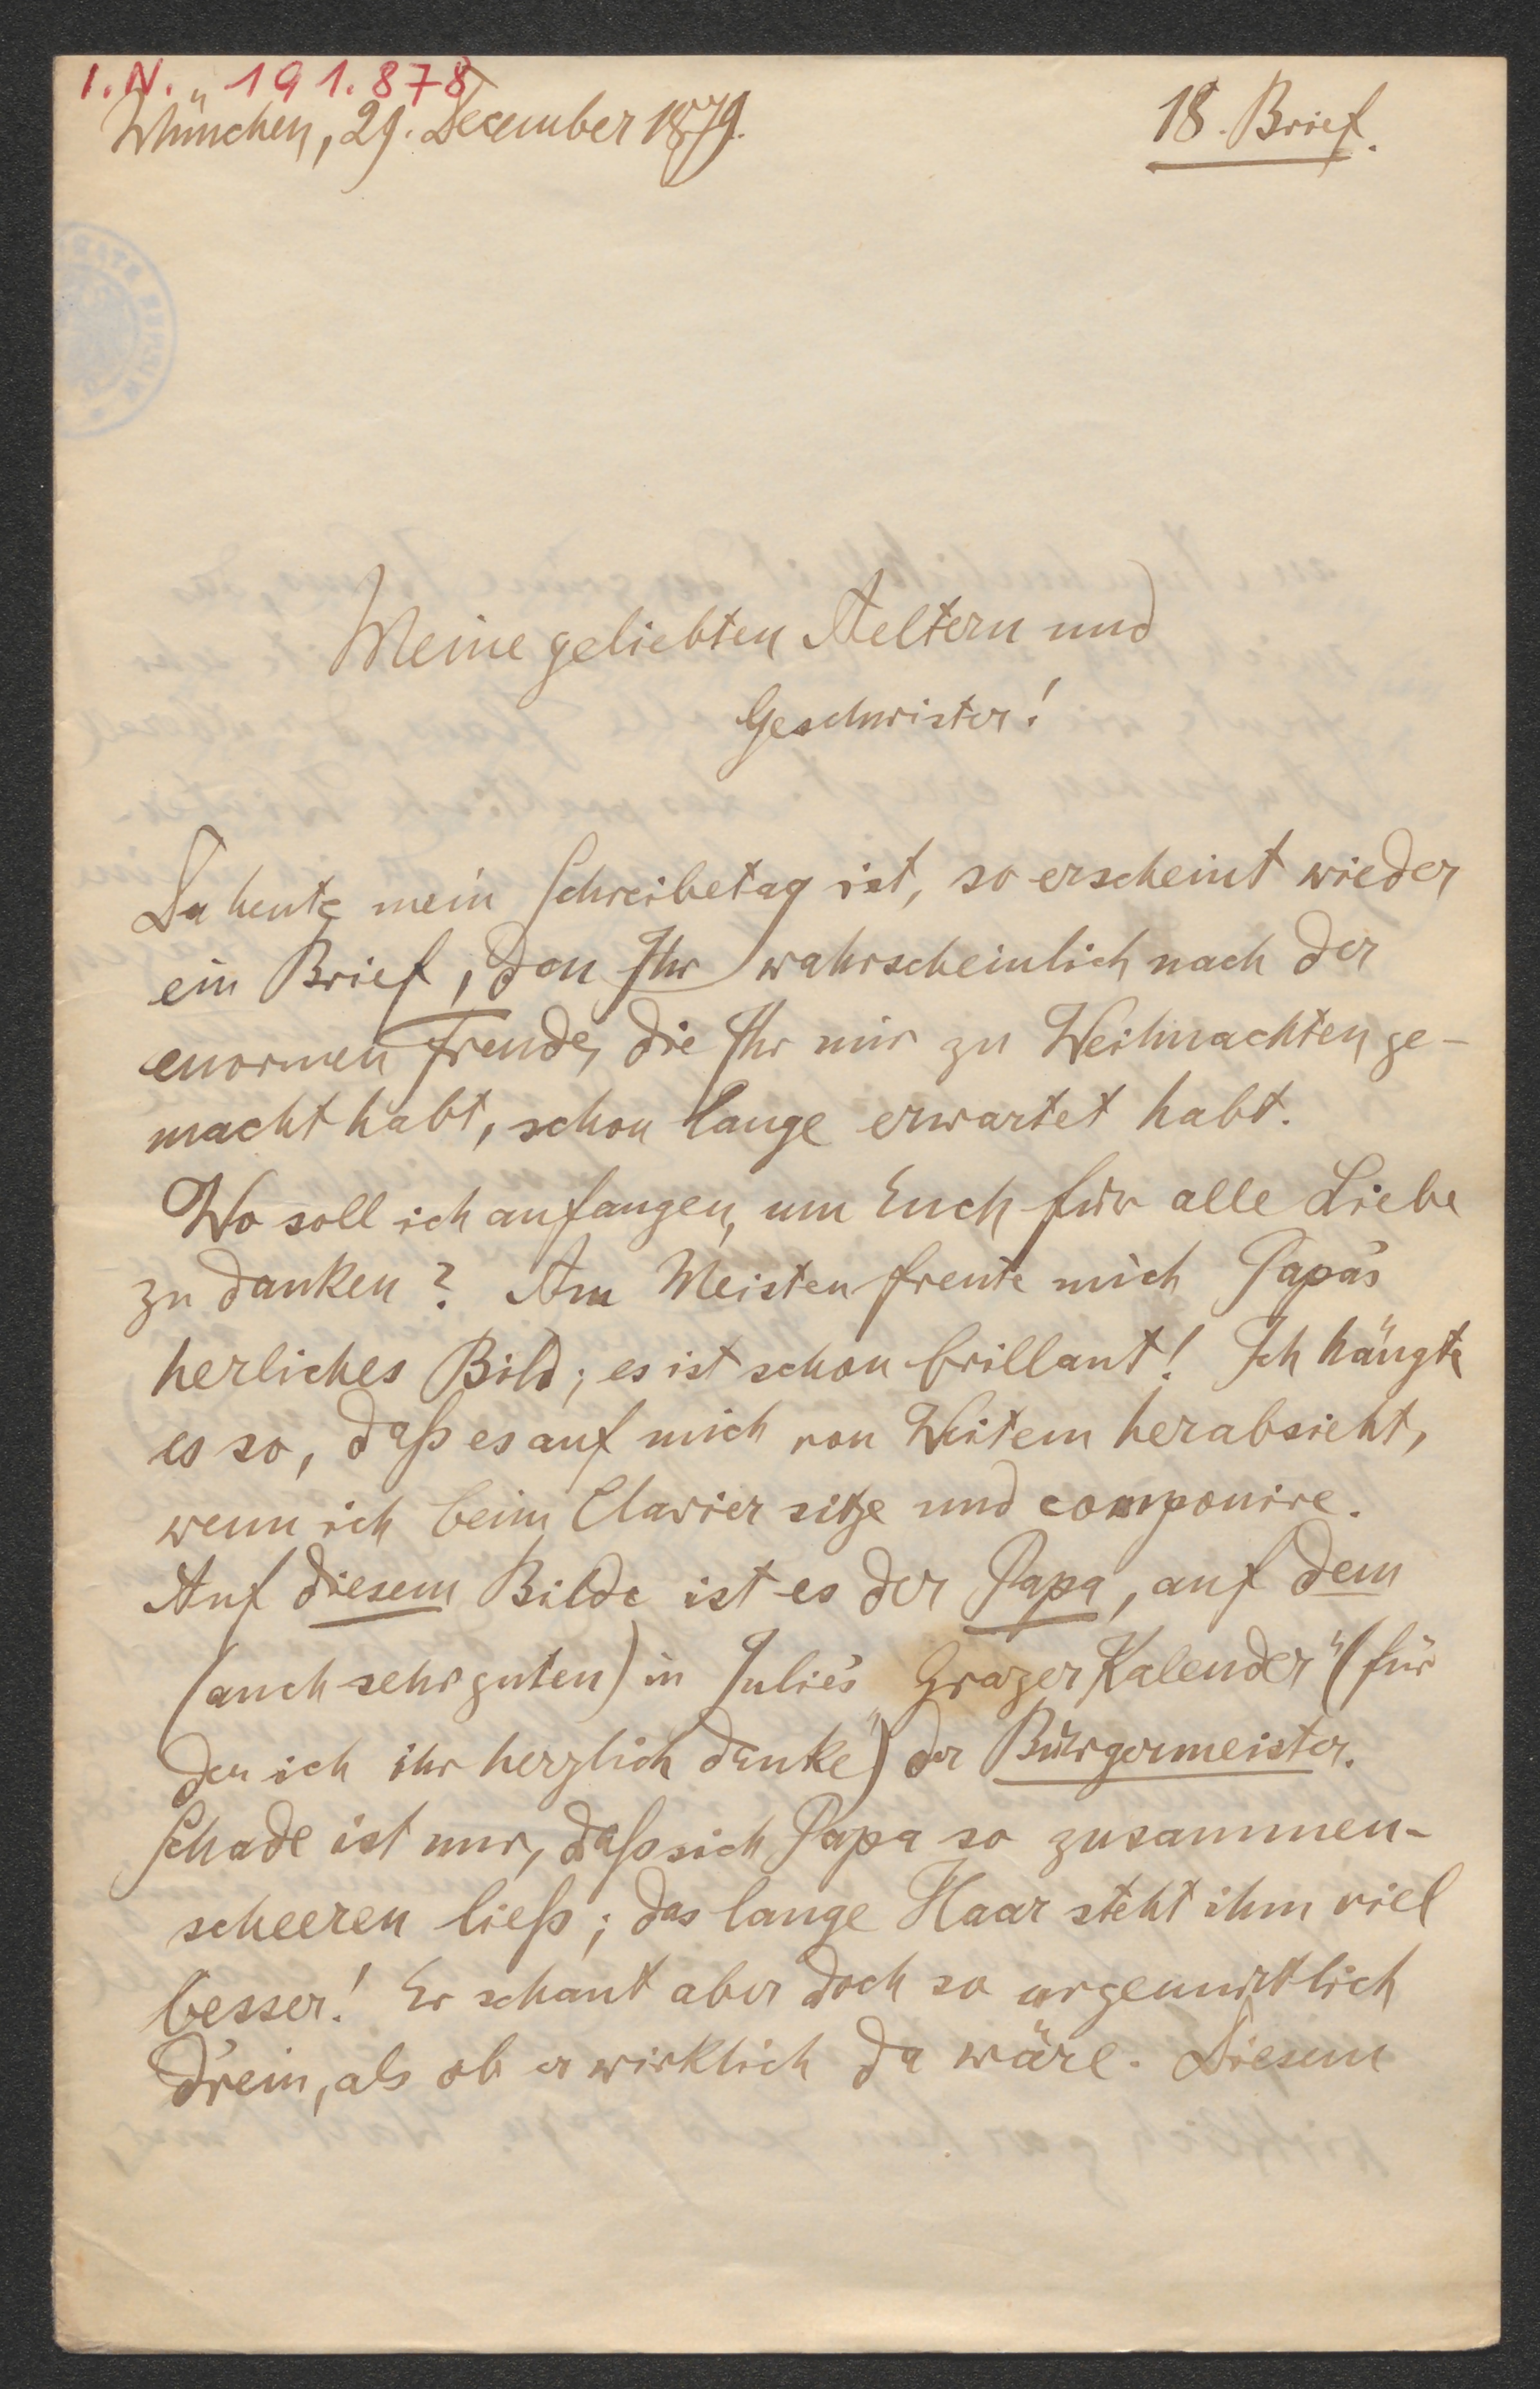 I.N. 191.878
München, 29. December 1879.
18. Brief.
Meine geliebten Aeltern und
Geschwister!
Da heute mein Schreibetag ist, so erscheint wieder
ein Brief, den Ihr wahrscheinlich nach der
enormen Freude, die Ihr mir zu Weihnachten ge-
macht habt, schon lange erwartet habt.
Wo soll ich anfangen, um Euch für alle Liebe
zu danken? Am Meisten freute mich Papa's
herliches Bild; es ist schon brillant! Ich hängte
es so, daß es auf mich von Weitem herabsieht,
wenn ich beim Clavier sitze und componire.
Auf diesem Bilde ist es der Papa, auf dem
(auch sehr guten) in Julie's „Grazer Kalender" (für
den ich ihr herzlich danke) der Bürgermeister.
Schade ist nur, daß sich Papa so zusammen-
scheeren ließ; das lange Haar steht ihm viel
besser! Er schaut aber doch so urgemütlich
d'rein, als ob er wirklich da wäre. Diesem